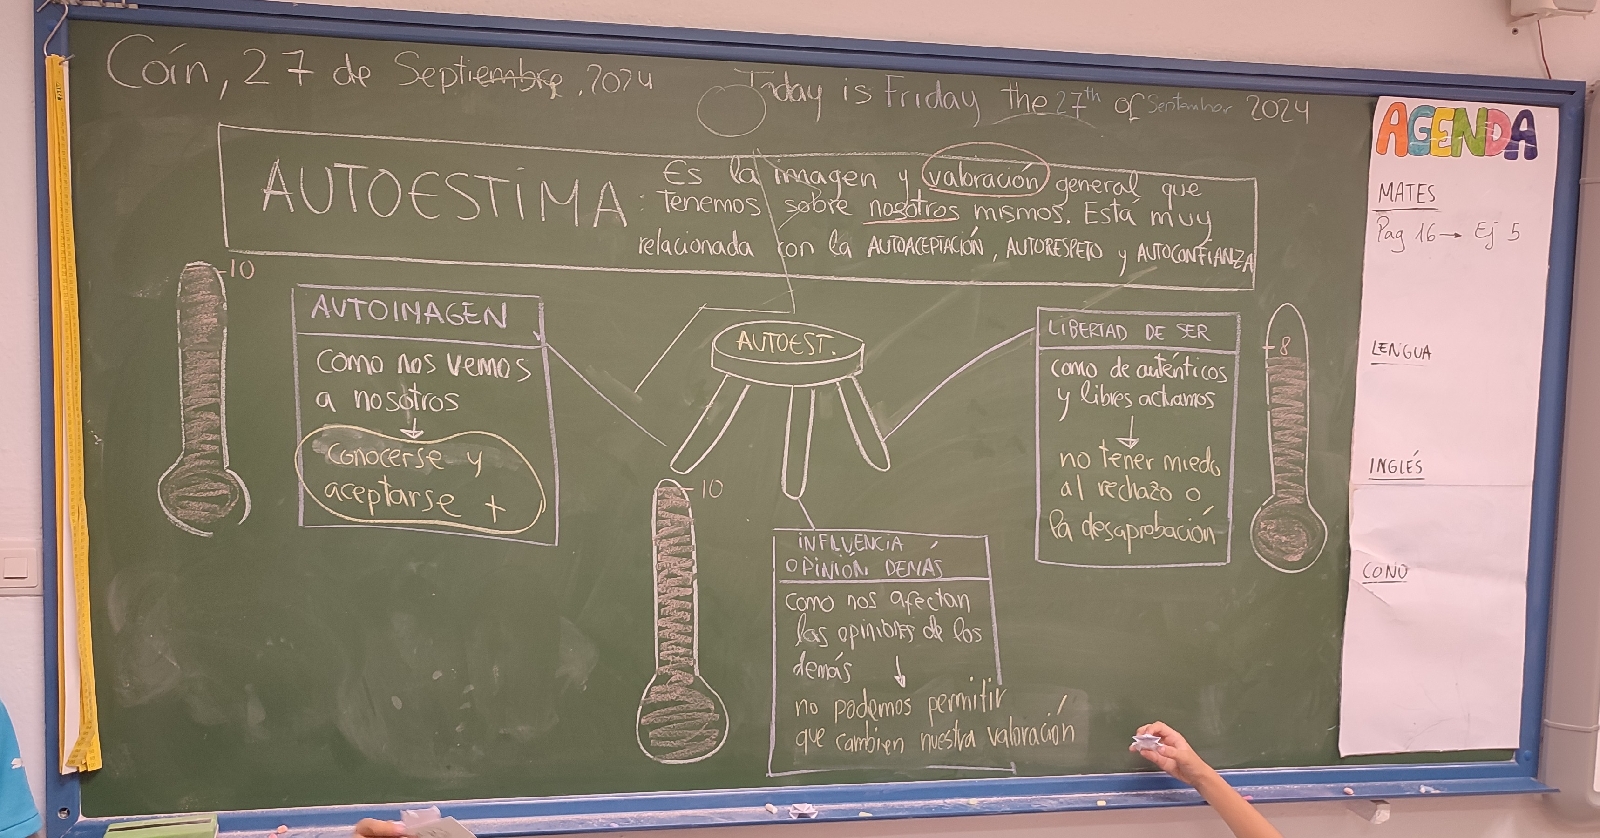 Coín, 27 de Septiembre, 2024
Today is Friday the 27th of September 2024
AUTOESTIMA: Es la imagen y valoración general que
tenemos sobre nosotros mismos. Está muy
relacionada con la AUTOACEPTACIÓN, AUTORESPETO y AUTOCONFIANZA
10
AUTOIMAGEN
como nos vemos
a nosotros
conocerse y
aceptarse +
AUTOEST.
10
INFLUENCIA
OPINIÓN DEMÁS
como nos afectan
las opiniones de los
demás
no podemos permitir
que cambien nuestra valoración
LIBERTAD DE SER
como de auténticos
y libres actuamos
no tener miedo
al rechazo o
la desaprobación
8
AGENDA
MATES
Pag 16→ Ej 5
LENGUA
INGLÉS
CONO